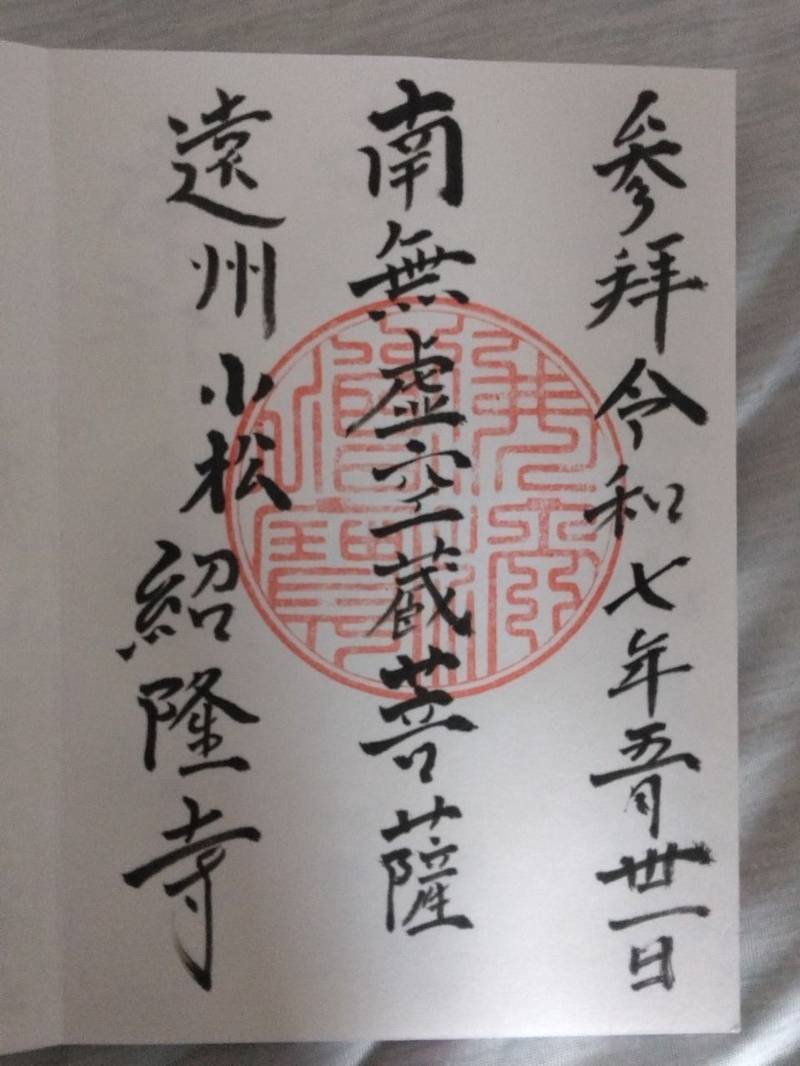 参拜令和七年五月卅一日
南無虚空蔵菩薩
遠州小松紹隆寺